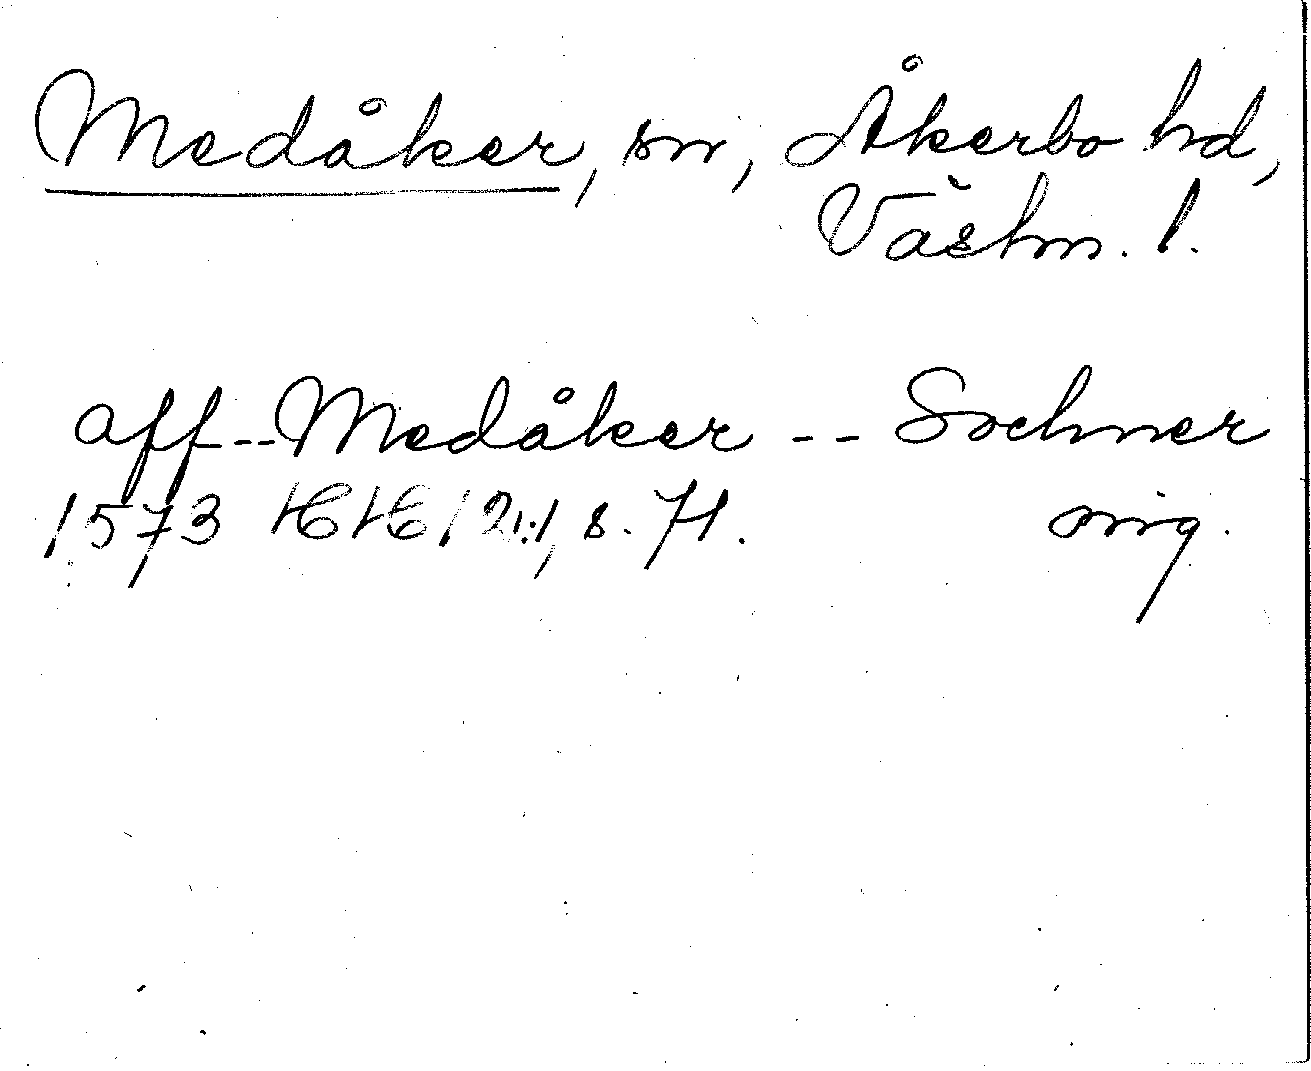 Medåker, sn, Åkerbo hd,
Västm. l.
aff -- Medåker -- Sochner
1573 HH 12:1, s. 71. orig.